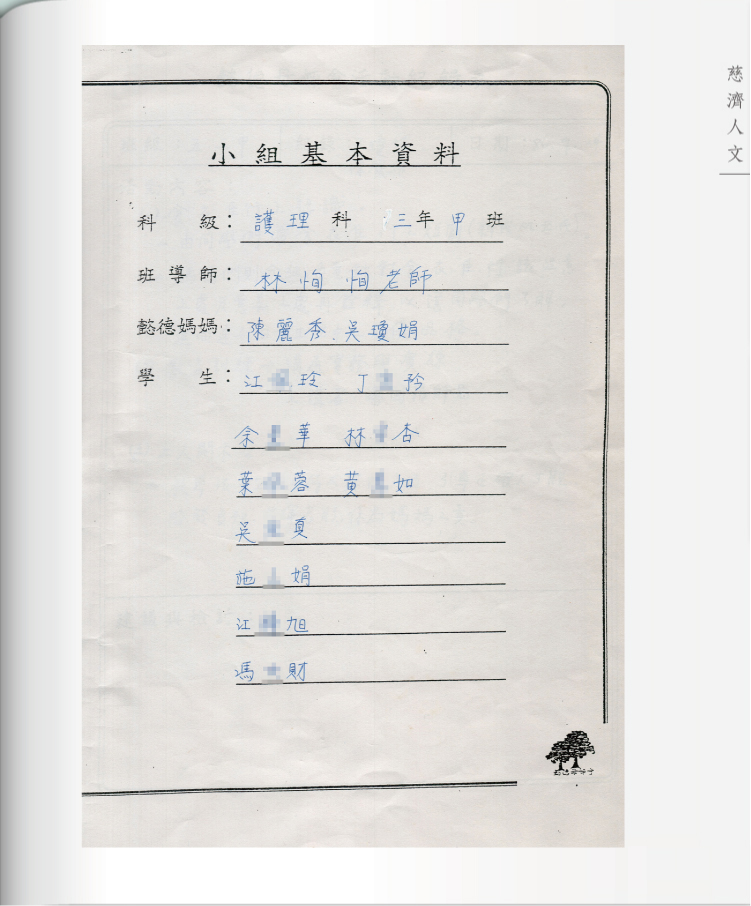 慈濟人文
小組基本資料
科級：護理科 三年甲班
班導師：林恂恂老師
懿德媽媽：陳麗秀、吳瓊娟
學生：江 玲 丁 矜
余 華 林 杏
葉 蓉 黃 如
吳 真
施 娟
江 旭
馮 財